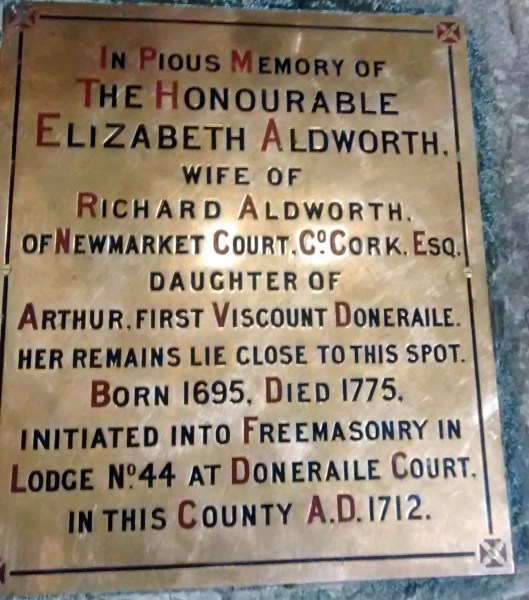 In Pious Memory of
The Honourable
Elizabeth Aldworth,
wife of
Richard Aldworth,
of Newmarket Court, Cº Cork, Esq.
daughter of
Arthur, first Viscount Doneraile.
her remains lie close to this spot.
Born 1695, Died 1775,
initiated into Freemasonry in
Lodge Nº 44 at Doneraile Court.
in this County A.D. 1712.